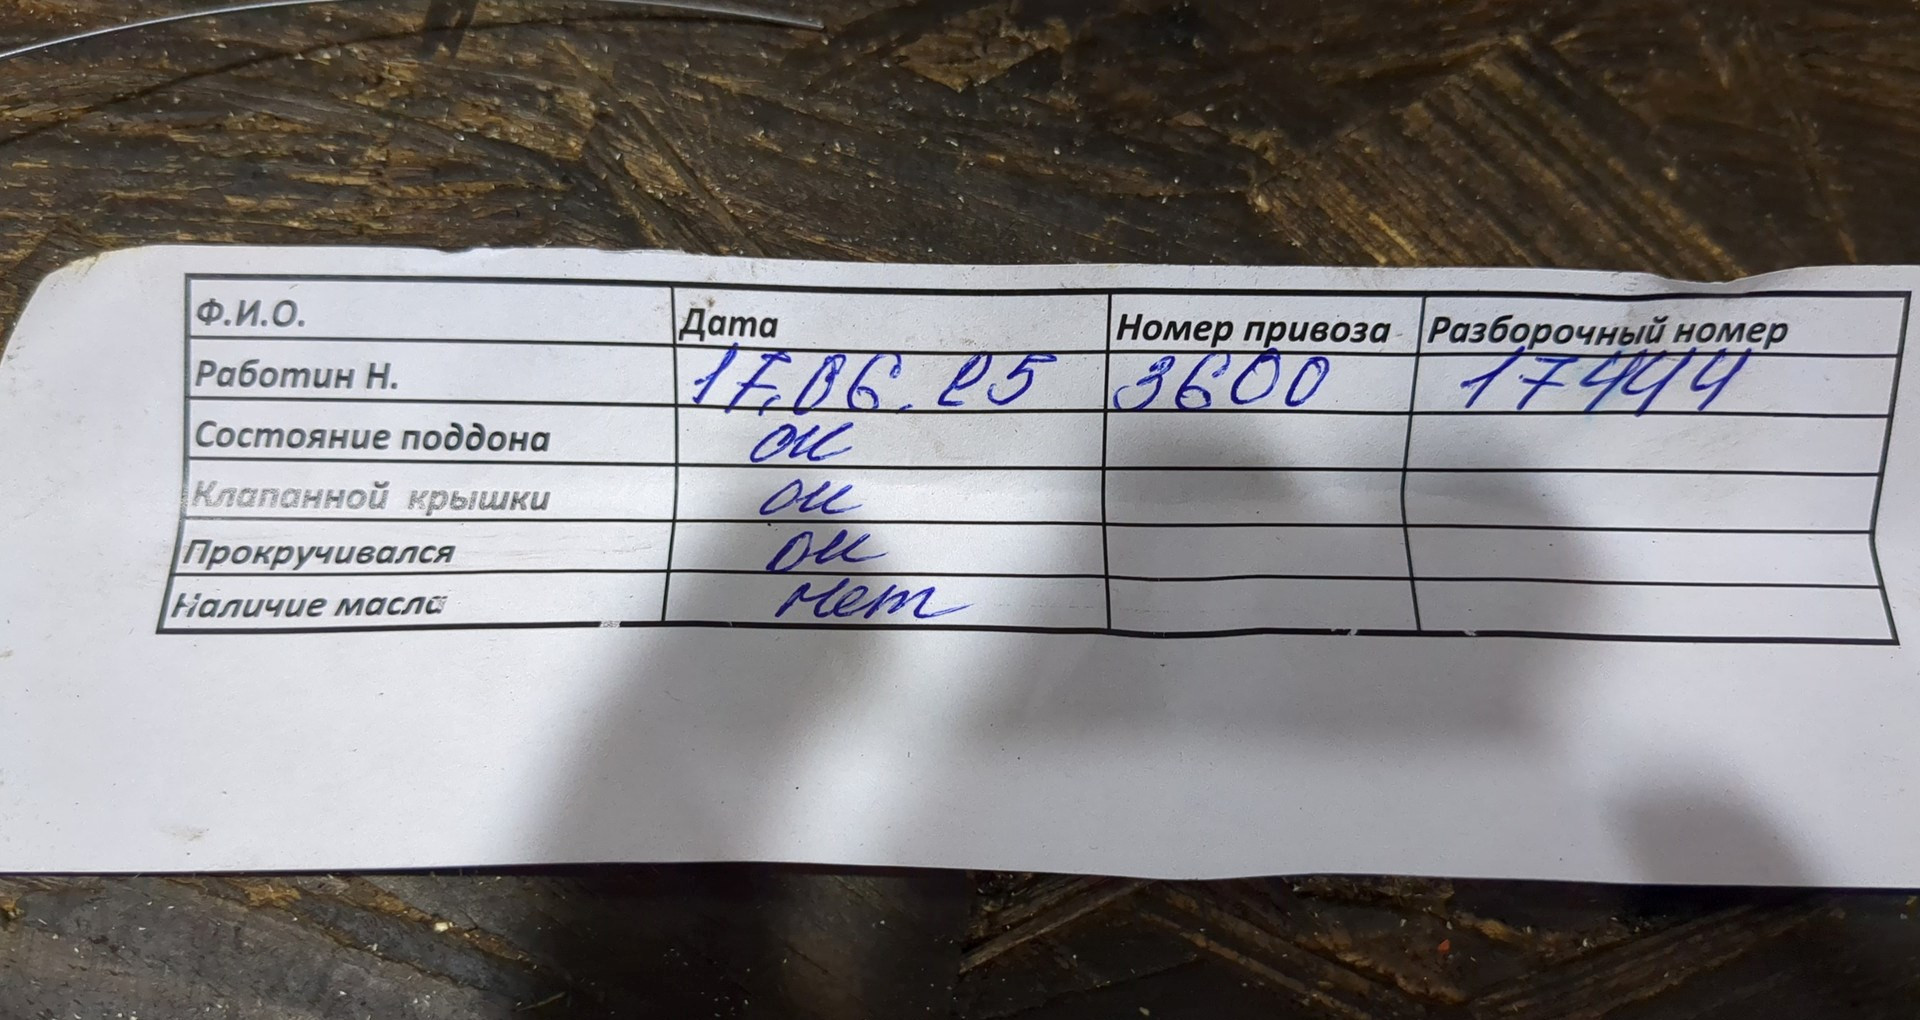 Ф.И.О. Дата Номер привоза Разборочный номер
Работин Н. 17.06.25 3600 17444
Состояние поддона ок
Клапанной крышки ок
Прокручивался ок
Наличие масла нет